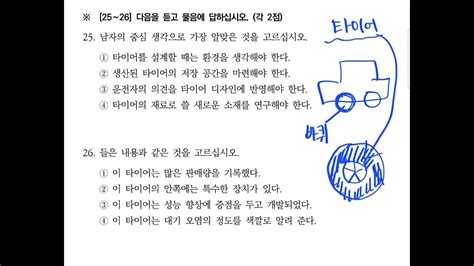 ※ [25~26] 다음을 듣고 물음에 답하십시오. (각 2점)
타이어
25. 남자의 중심 생각으로 가장 알맞은 것을 고르십시오.
① 타이어를 설계할 때는 환경을 생각해야 한다.
② 생산된 타이어의 저장 공간을 마련해야 한다.
③ 운전자의 의견을 타이어 디자인에 반영해야 한다.
④ 타이어의 재료로 쓸 새로운 소재를 연구해야 한다.
바퀴
26. 들은 내용과 같은 것을 고르십시오.
① 이 타이어는 많은 판매량을 기록했다.
② 이 타이어의 안쪽에는 특수한 장치가 있다.
③ 이 타이어는 성능 향상에 중점을 두고 개발되었다.
④ 이 타이어는 대기 오염의 정도를 색깔로 알려 준다.